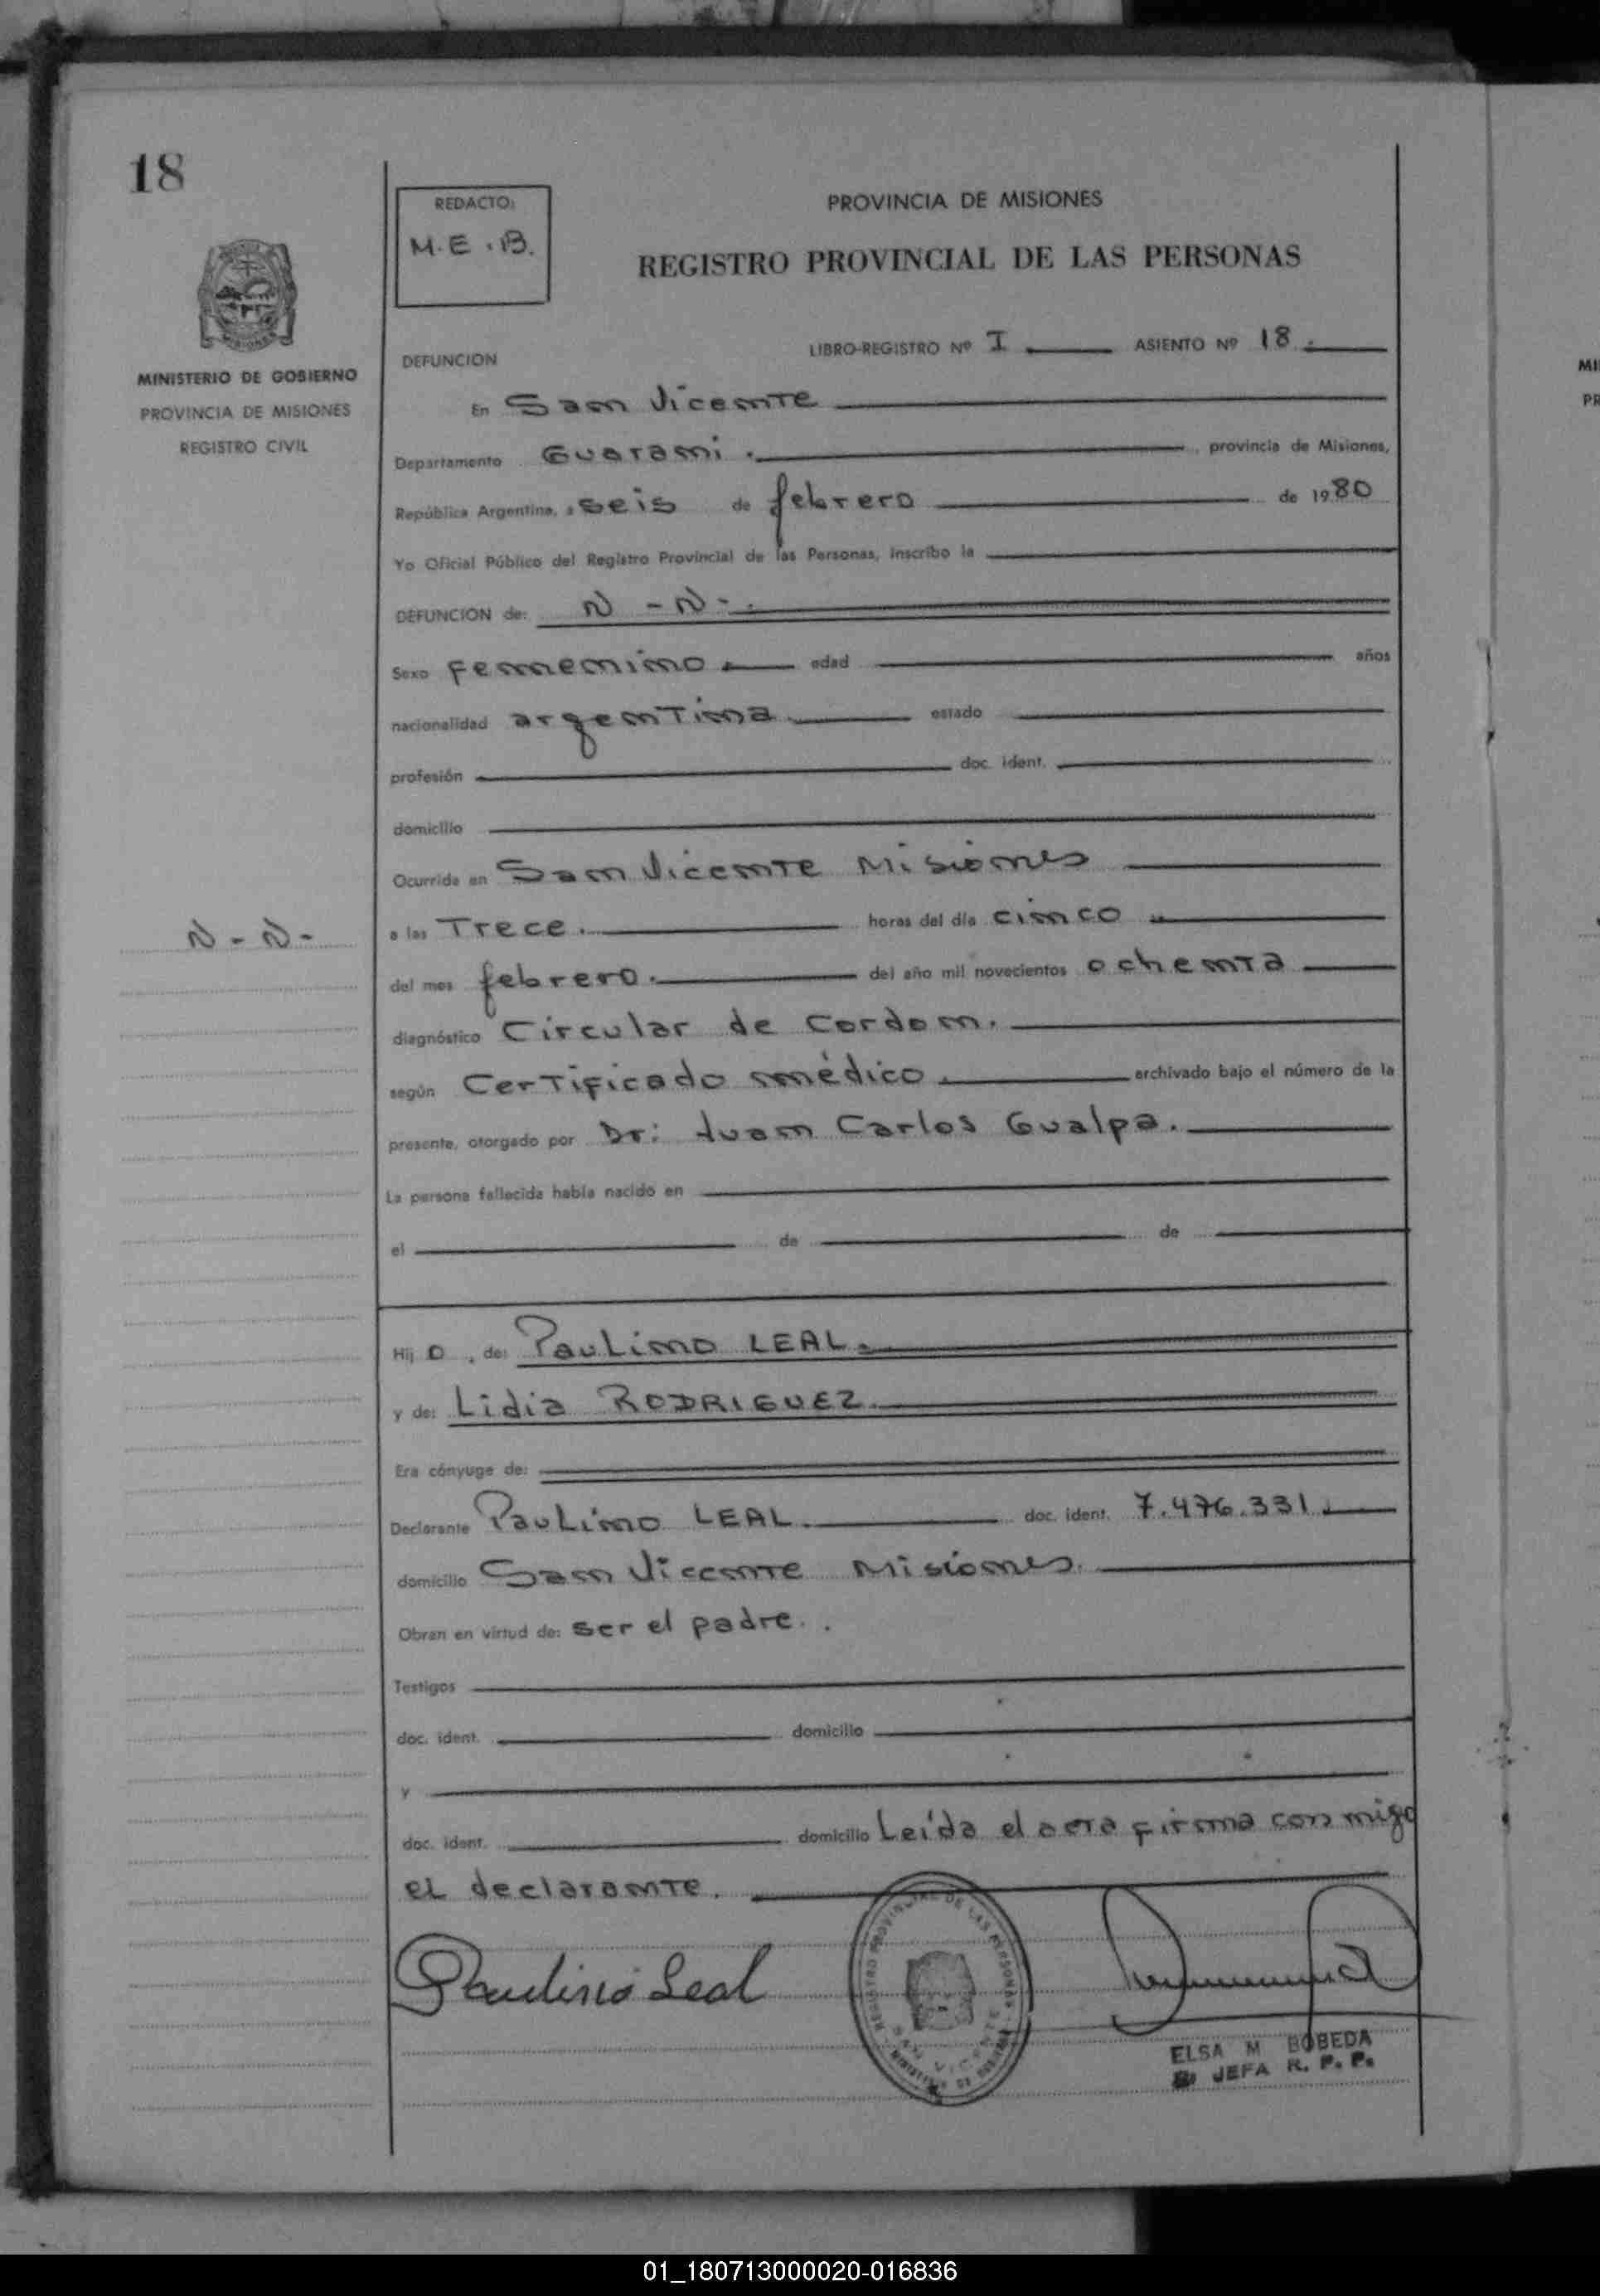 18
REDACTO:
M.E.B.
PROVINCIA DE MISIONES
REGISTRO PROVINCIAL DE LAS PERSONAS
MINISTERIO DE GOBIERNO
PROVINCIA DE MISIONES
REGISTRO CIVIL
LIBRO-REGISTRO Nº I ASIENTO Nº 18.
DEFUNCION
En San Vicente
Departamento Guarani. , provincia de Misiones,
República Argentina, a seis de febrero de 1980
Yo Oficial Público del Registro Provincial de las Personas, inscribo la
DEFUNCION de: N - N -.
Sexo Femenino edad años
nacionalidad argentina estado
profesión doc. ident.
domicilio
Ocurrida en San Vicente Misiones
N - N -
a las Trece. horas del día cinco
del mes febrero. del año mil novecientos ochenta
diagnóstico Circular de Cordon.
según Certificado médico. archivado bajo el número de la
presente, otorgado por Dr: Juan Carlos Gualpa.
La persona fallecida había nacido en
el de de
Hij o , de: Paulino LEAL.
y de: Lidia RODRIGUEZ.
Era cónyuge de:
Declarante Paulino LEAL. doc. ident. 7.476.331.
domicilio San Vicente Misiones.
Obran en virtud de: ser el padre..
Testigos
doc. ident. domicilio
y
doc. ident. domicilio Leída el acta firma con migo
el declarante.
Paulino Leal
REGISTRO PROVINCIAL DE LAS PERSONAS
SAN VICENTE
ELSA M BOBEDA
JEFA R. P. P.
MI
PR
01_180713000020-016836